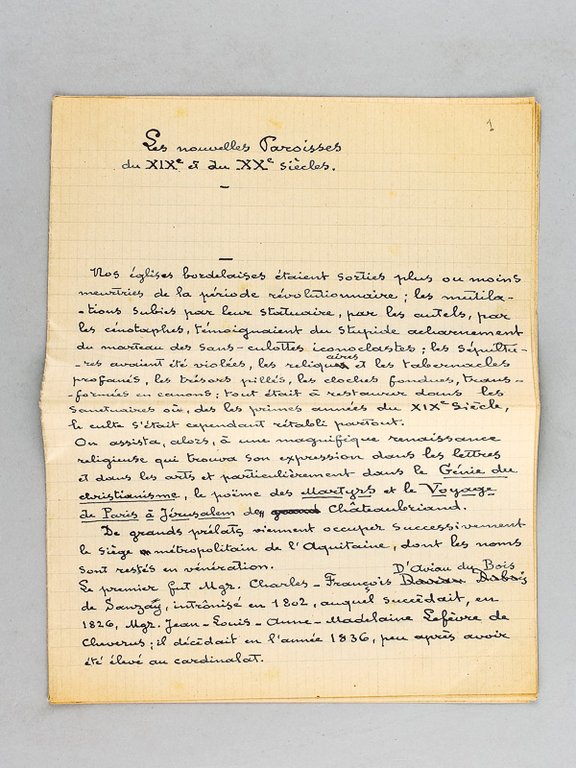 1
Les nouvelles Paroisses
du XIXe et du XXe siècles.
Nos églises bordelaises étaient sorties plus ou moins
meurtries de la période révolutionnaire ; les mutila-
-tions subies par leur statuaire, par les autels, par
les cénotaphes, témoignaient du stupide acharnement
du marteau des sans-culottes iconoclastes ; les sépultu-
-res avaient été violées, les reliquaires et les tabernacles
profanés, les trésors pillés, les cloches fondues, trans-
-formées en canons ; tout était à restaurer dans les
sanctuaires où, dès les primes années du XIXe siècle,
le culte s'était cependant rétabli partout.
On assista, alors, à une magnifique renaissance
religieuse qui trouva son expression dans les lettres
et dans les arts et particulièrement dans le Génie du
christianisme, le poëme des Martyrs et le Voyage
de Paris à Jérusalem de grand Châteaubriand.
De grands prélats viennent occuper successivement
le siège métropolitain de l'Aquitaine, dont les noms
sont restés en vénération.
Le premier fut Mgr. Charles-François D'Aviau du Bois
de Sanzay, intrônisé en 1802, auquel succédait, en
1826, Mgr. Jean-Louis-Anne-Madelaine Lefèvre de
Cheverus ; il décédait en l'année 1836, peu après avoir
été élevé au cardinalat.